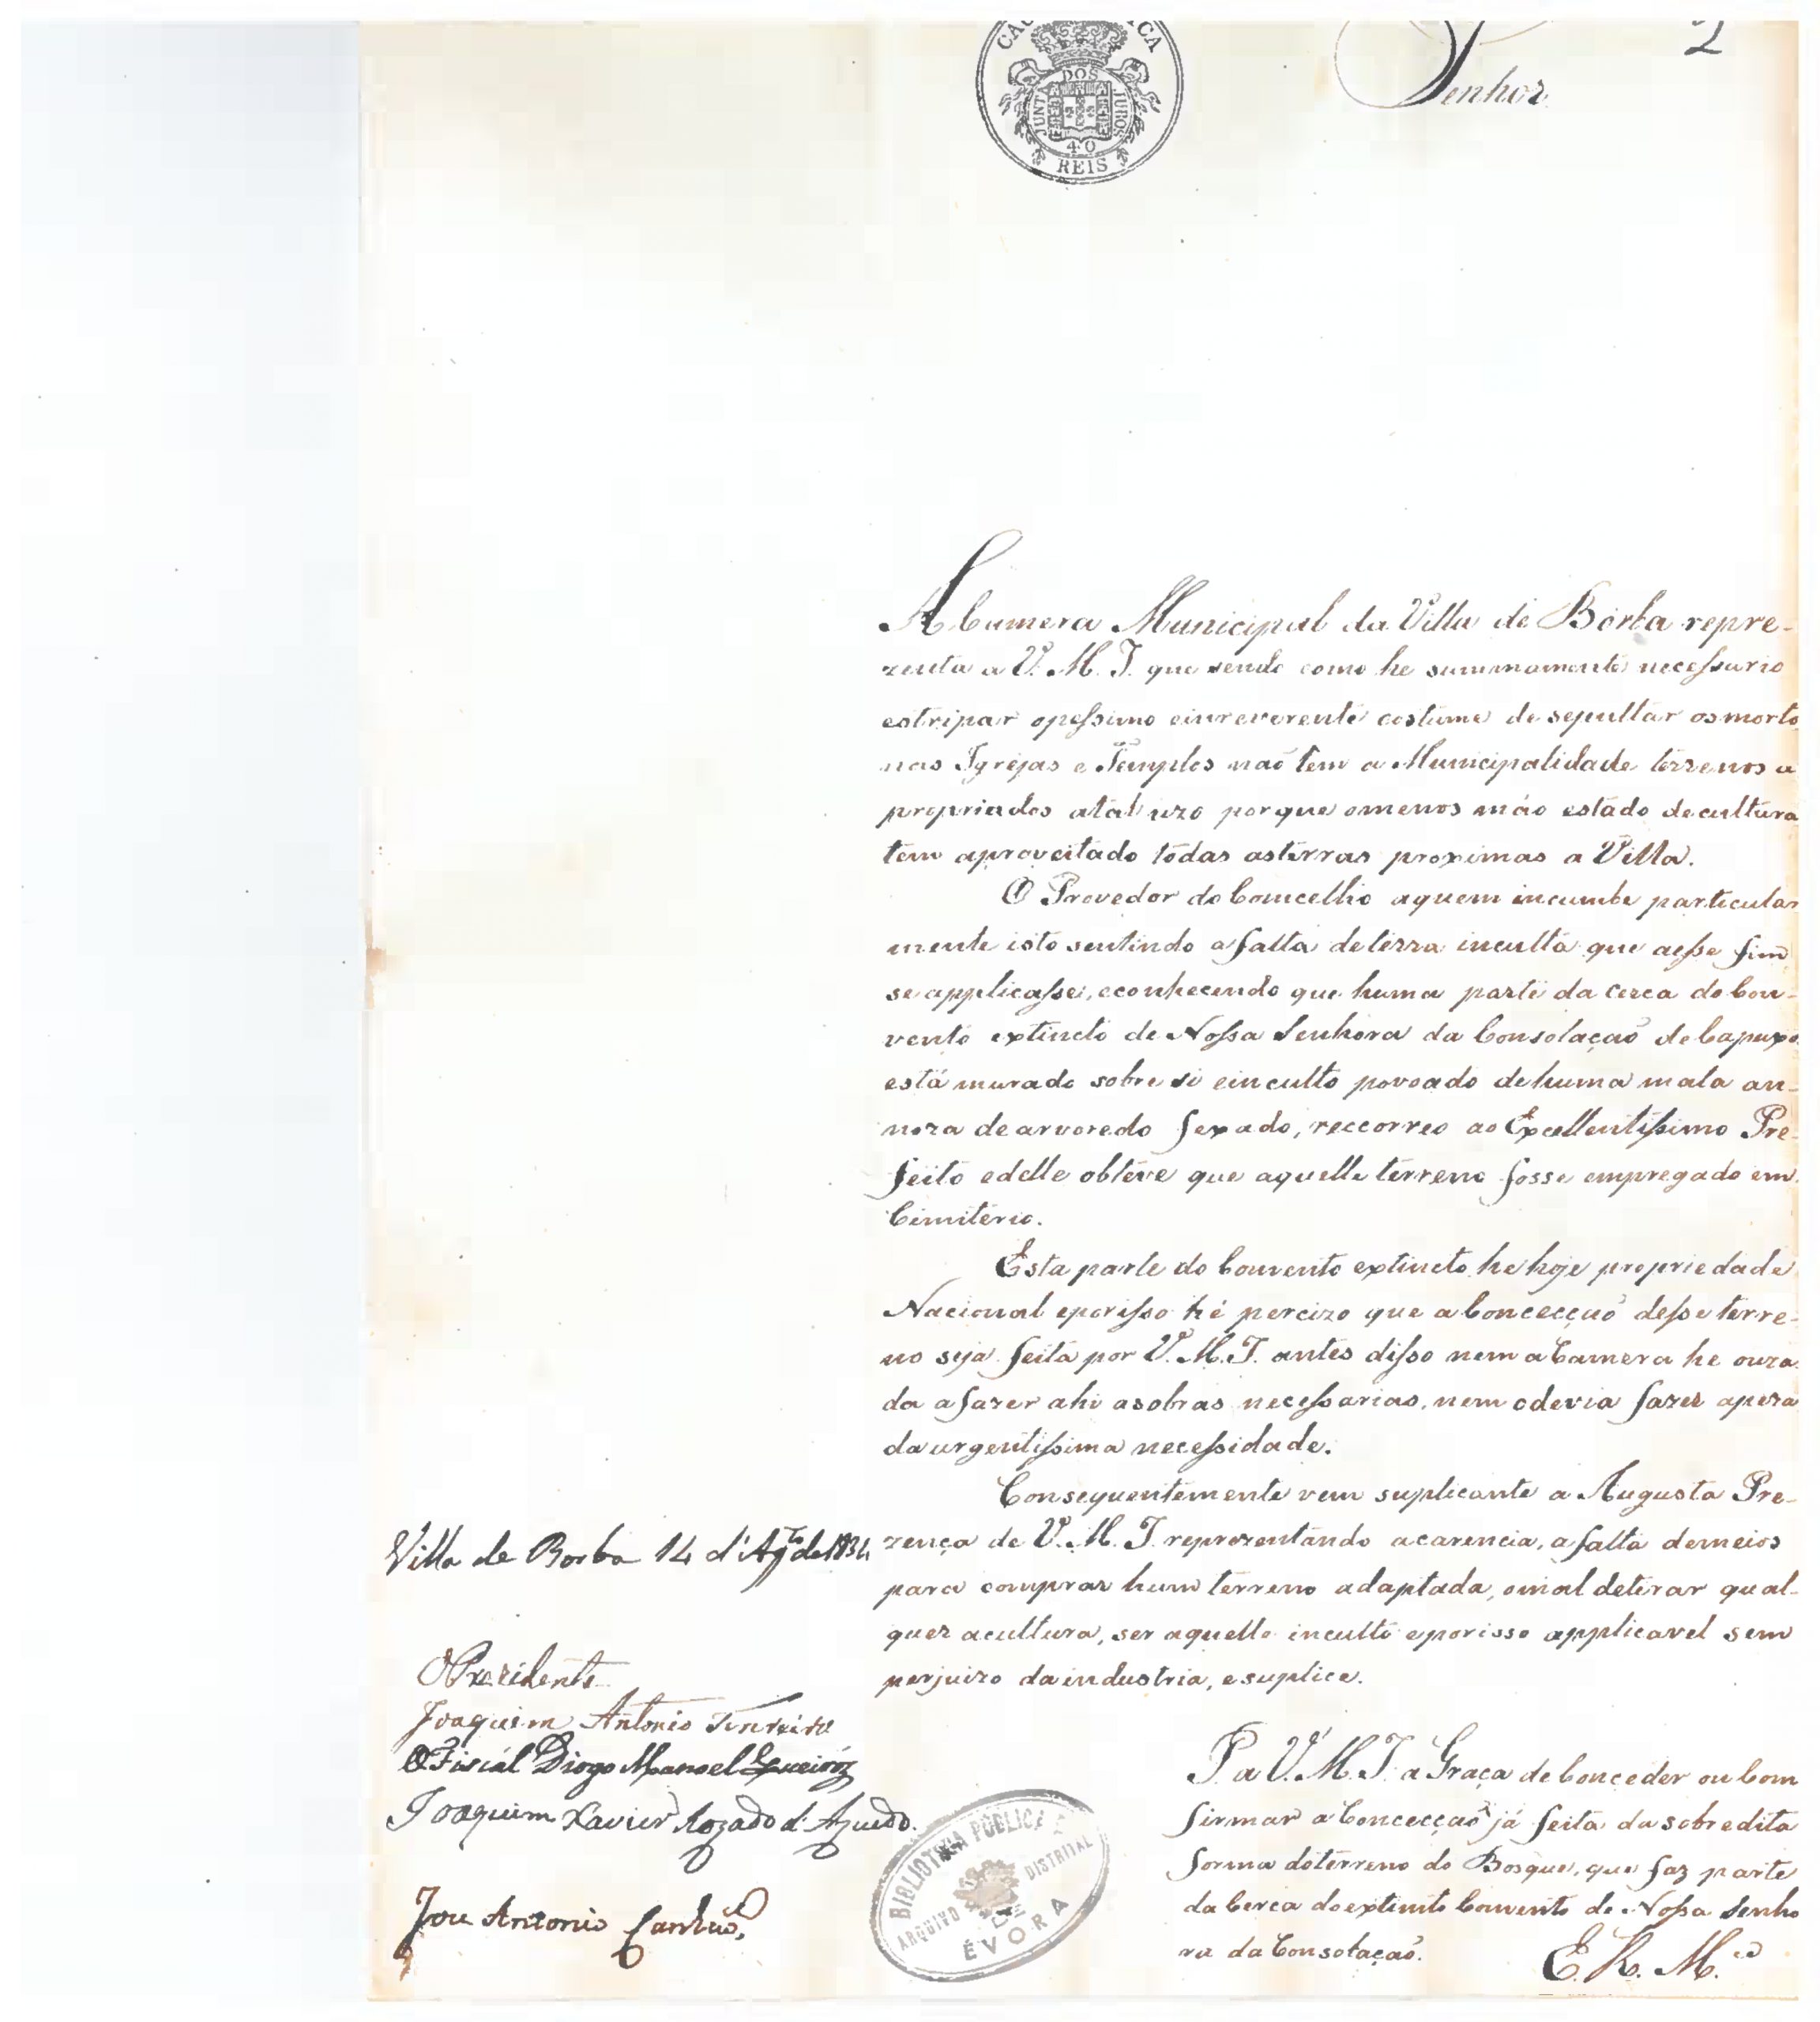 2
Senhor
DOS
JUNTA JUROS
40
REIS
A Camera Municipal da Villa de Borba repre-
zenta a V. M. I. que sendo como he summamente necessario
estripar opessimo einreverente costume de sepultar osmortos
nas Igrejas e Templos naõ tem a Municipalidade terrenos a
propriados atal uzo porque omenos máo estado decultura
tem aproveitado todas asterras proximas a Villa.
O Provedor do Comcelho aquem incumbe particular
mente isto sentindo afalta deterra inculta que aesse fim
se applicasse, econhecendo que huma parte da cerca do Con-
vento extincto de Nossa Senhora da Consolaçaõ de Capuxos
está murado sobre si einculto povoado dehuma mala an-
noza dearvoredo sexado, reccorreo ao Excellentissimo Pre-
feito edelle obteve que aquelle terreno fosse empregado em
Cimiterio.
Esta parte do Convento extincto he hoje propriedade
Nacional eporisso hé percizo que a Concecçaõ desse terre-
no seja feita por V. M. I. antes disso nem a Camera he ouza
da afazer ahi asobras necessarias, nem odevia fazer apeza
daurgentissima necessidade.
Consequentemente vem suplicante a Augusta Pre-
zença de V. M. I. reprezentando acarencia, afalta demeios
para comprar hum terreno adaptada, omal detirar qual-
quer acultura, ser aquelle inculto eporisso applicavel sem
perjuizo daindustria, esuplica.
P. a V. M. I. a Graça deConceder ou Com
firmar a Concecçaõ já feita da sobredita
forma doterreno do Bosque, que faz parte
da Cerca doextinto Convento de Nossa Senho
ra da Consolaçaõ.
E. R. M.ce
Villa de Borba 14 d'Ag.to de 1834
O Prezidente
Joaquim Antonio
O Fiscal Diogo Manoel Queiróz
Joaquim Xavier Rozado d'Azuedo.
Antonio
BIBLIOTECA PÚBLICA E
ARQUIVO DISTRITAL
DE
ÉVORA